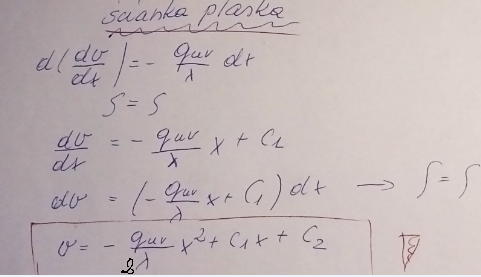 ścianka płaska
d(dϑ/dx) = - quv/λ dx
∫ = ∫
dϑ/dx = - quv/λ x + C1
dϑ = (- quv/λ x + C1) dx → ∫ = ∫
ϑ = - quv/2λ x² + C1x + C2